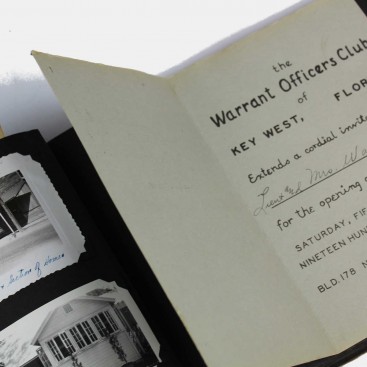 the
Warrant Officers Club
of
KEY WEST, FLOR
Extends a cordial invit
Lieut & Mrs Wa
for the opening
SATURDAY, FI
NINETEEN HUND
BLD. 178 N
Section of Home